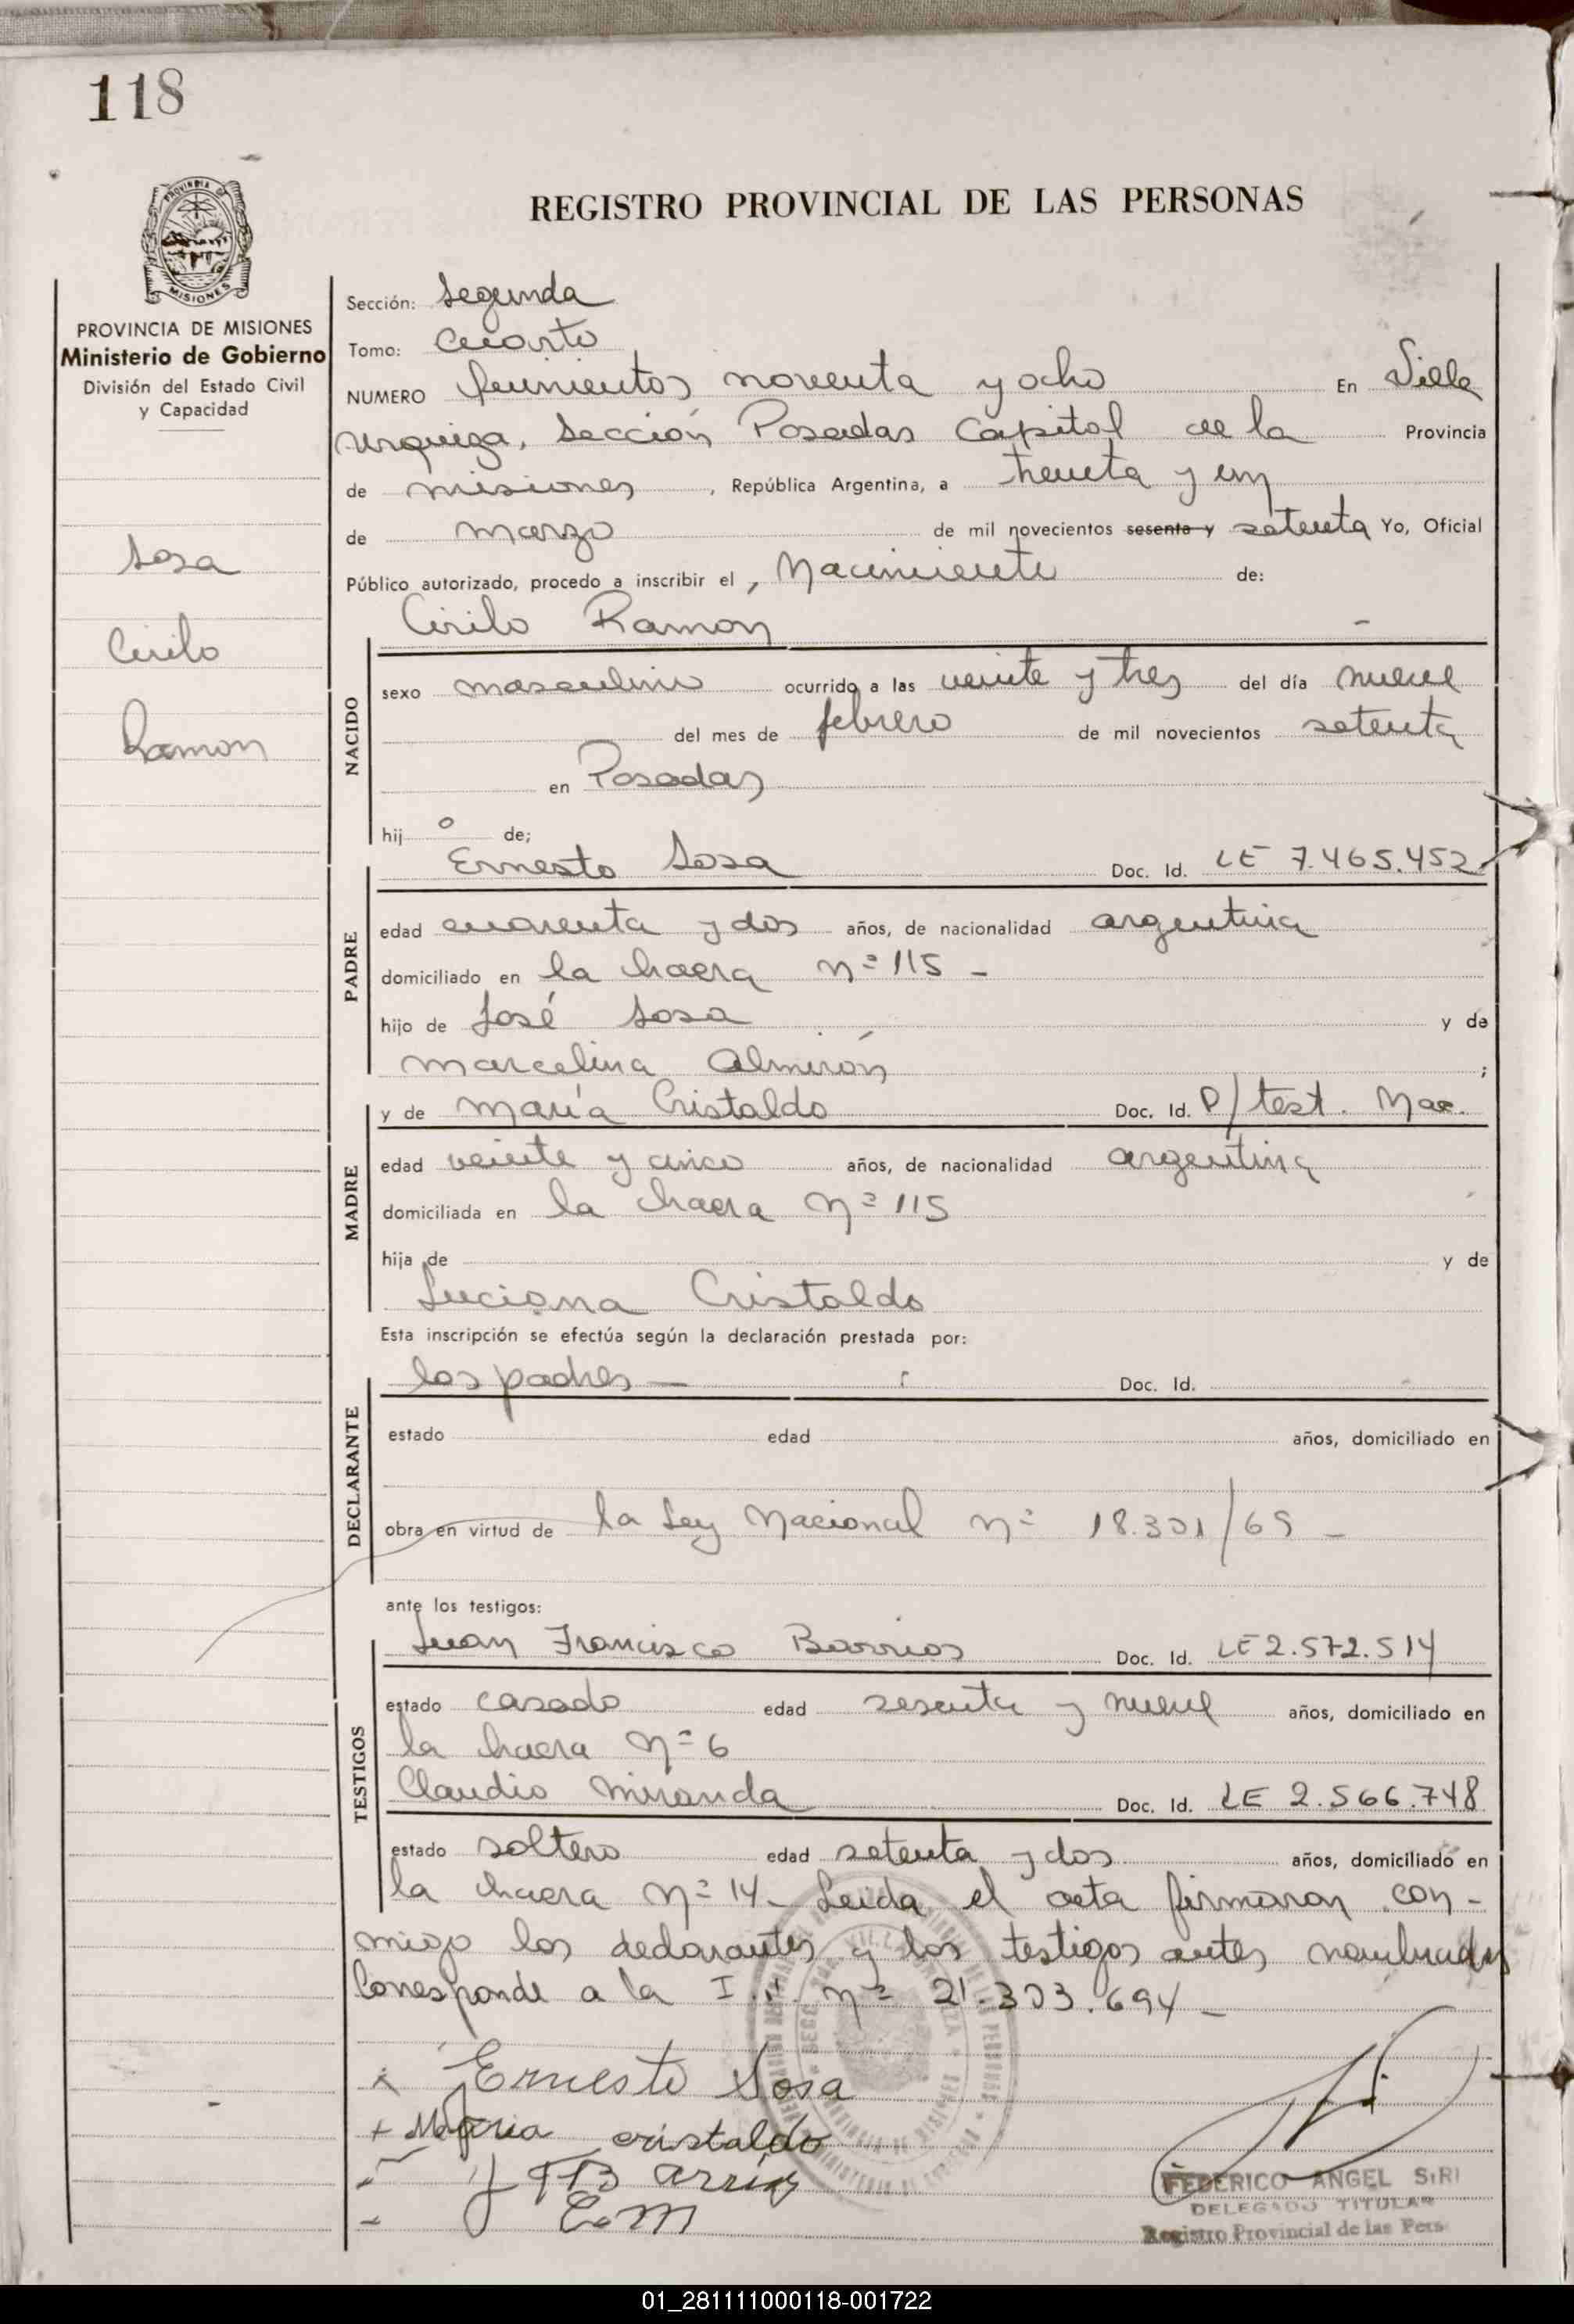 118
REGISTRO PROVINCIAL DE LAS PERSONAS
PROVINCIA DE MISIONES
Ministerio de Gobierno
División del Estado Civil
y Capacidad
Sosa
Cirilo
Ramon
Sección: Segunda
Tomo: Cuarto
NUMERO Quinientos noventa y ocho En Villa
Urquiza, Sección Posadas Capital de la Provincia
de misiones, República Argentina, a treinta y un
de marzo de mil novecientos sesenta y setenta Yo, Oficial
Público autorizado, procedo a inscribir el, Nacimiento de:
Cirilo Ramon -
NACIDO
sexo masculino ocurrido a las veinte y tres del día nueve
del mes de febrero de mil novecientos setenta
en Posadas
hij o de;
Ernesto Sosa Doc. Id. LE 7.465.452
PADRE
edad cuarenta y dos años, de nacionalidad argentina
domiciliado en la chacra nº 115 -
hijo de José Sosa y de
marcelina Almirón ;
y de maría Cristaldo Doc. Id. P/ test. Nac.
MADRE
edad veinte y cinco años, de nacionalidad argentina
domiciliada en la chacra nº 115
hija de y de
Luciana Cristaldo
Esta inscripción se efectúa según la declaración prestada por:
los padres — Doc. Id.
DECLARANTE
estado edad años, domiciliado en
obra en virtud de la Ley Nacional nº 18.301/69 -
ante los testigos:
Juan Francisco Barrios Doc. Id. LE 2.572.514
TESTIGOS
estado casado edad sesenta y nueve años, domiciliado en
la chacra nº 6
Claudio Miranda Doc. Id. LE 2.566.748
estado soltero edad setenta y dos años, domiciliado en
la chacra nº 14 - Leida el acta firmaron con-
migo los declarantes y los testigos antes nombrados
Corresponde a la I. nº 21.303.694 -
Ernesto Sosa
+ Maria cristaldo
J F B arrios
C. M
FEDERICO ANGEL SIRI
DELEGADO TITULAR
Registro Provincial de las Pers
01_281111000118-001722